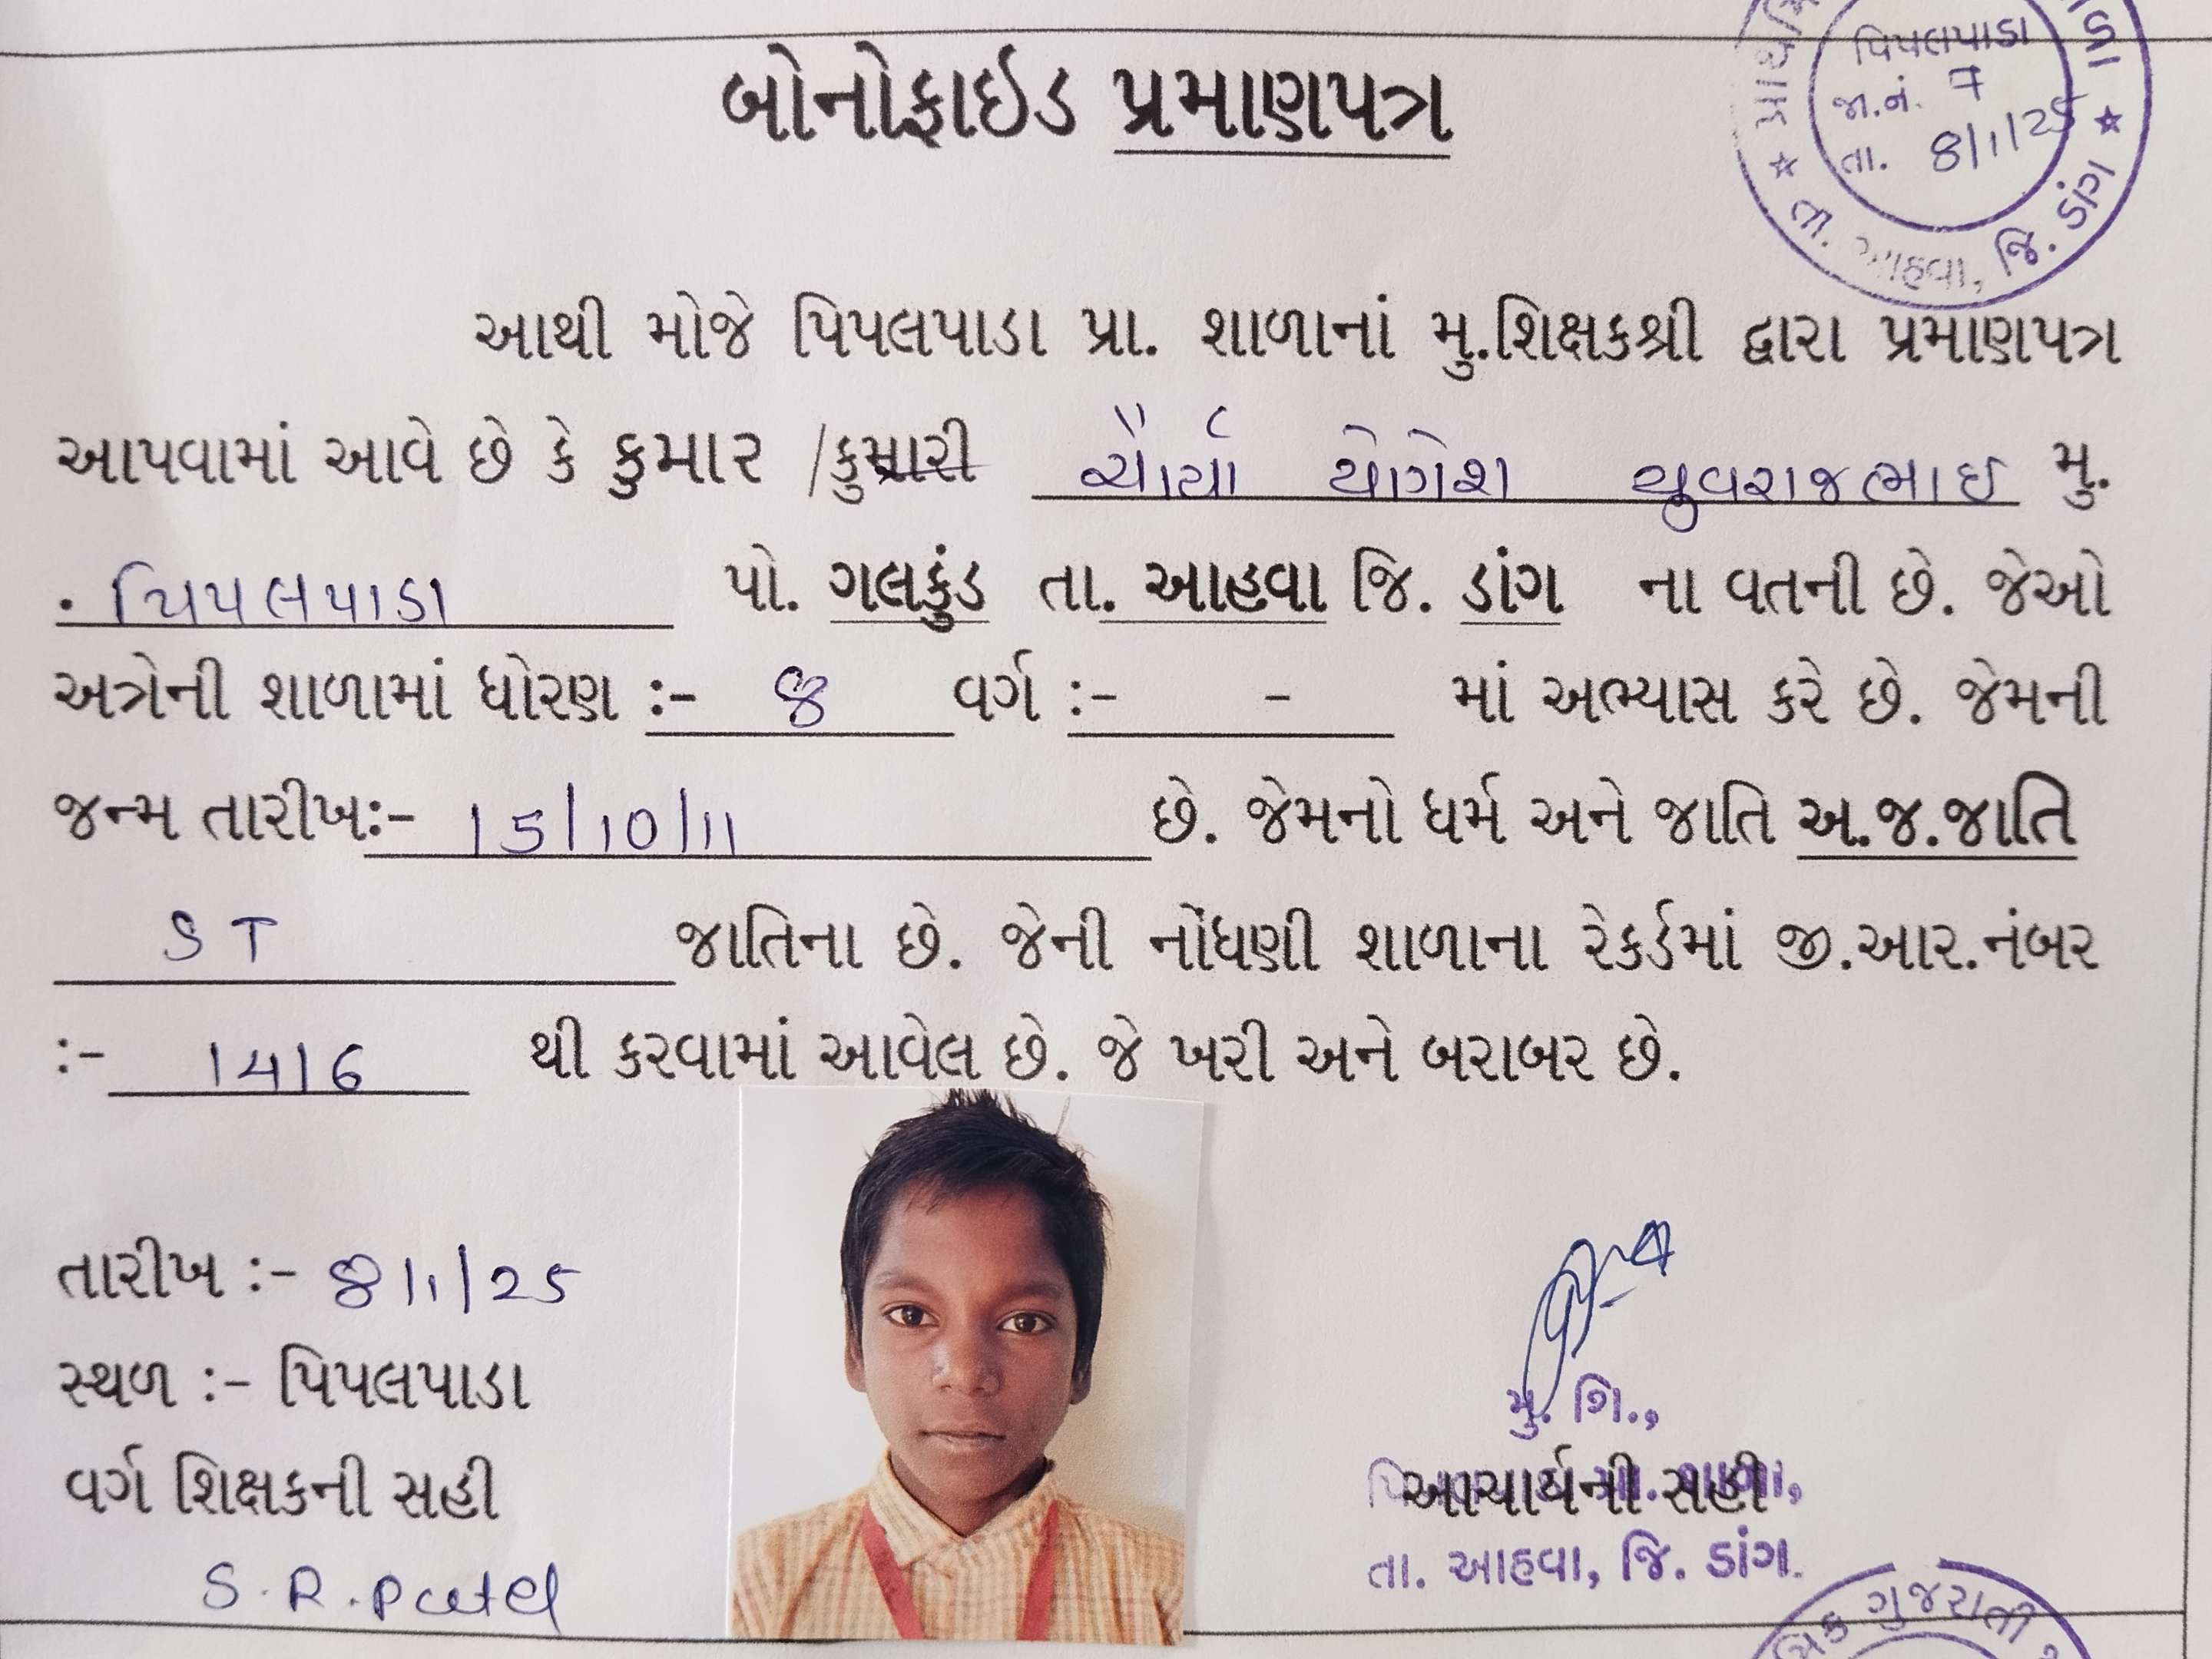 બોનોફાઈડ પ્રમાણપત્ર
પિપલપાડા
જા.નં. 7
તા. 8/1/25
તા. આહવા, જિ. ડાંગ
આથી મોજે પિપલપાડા પ્રા. શાળાનાં મુ.શિક્ષકશ્રી દ્વારા પ્રમાણપત્ર
આપવામાં આવે છે કે કુમાર /કુમારી ચૌર્યા યોગેશ યુવરાજભાઈ મુ.
. પિપલપાડા પો. ગલકુંડ તા. આહવા જિ. ડાંગ ના વતની છે. જેઓ
અત્રેની શાળામાં ધોરણ :- 8 વર્ગ :- - માં અભ્યાસ કરે છે. જેમની
જન્મ તારીખ:- 15/10/11 છે. જેમનો ધર્મ અને જાતિ અ.જ.જાતિ
ST જાતિના છે. જેની નોંધણી શાળાના રેકર્ડમાં જી.આર.નંબર
:- 1416 થી કરવામાં આવેલ છે. જે ખરી અને બરાબર છે.
તારીખ :- 8/1/25
સ્થળ :- પિપલપાડા
વર્ગ શિક્ષકની સહી
S.R.Patel
મુ. શિ.,
આચાર્યની સહી
તા. આહવા, જિ. ડાંગ.
ગુજરાતી